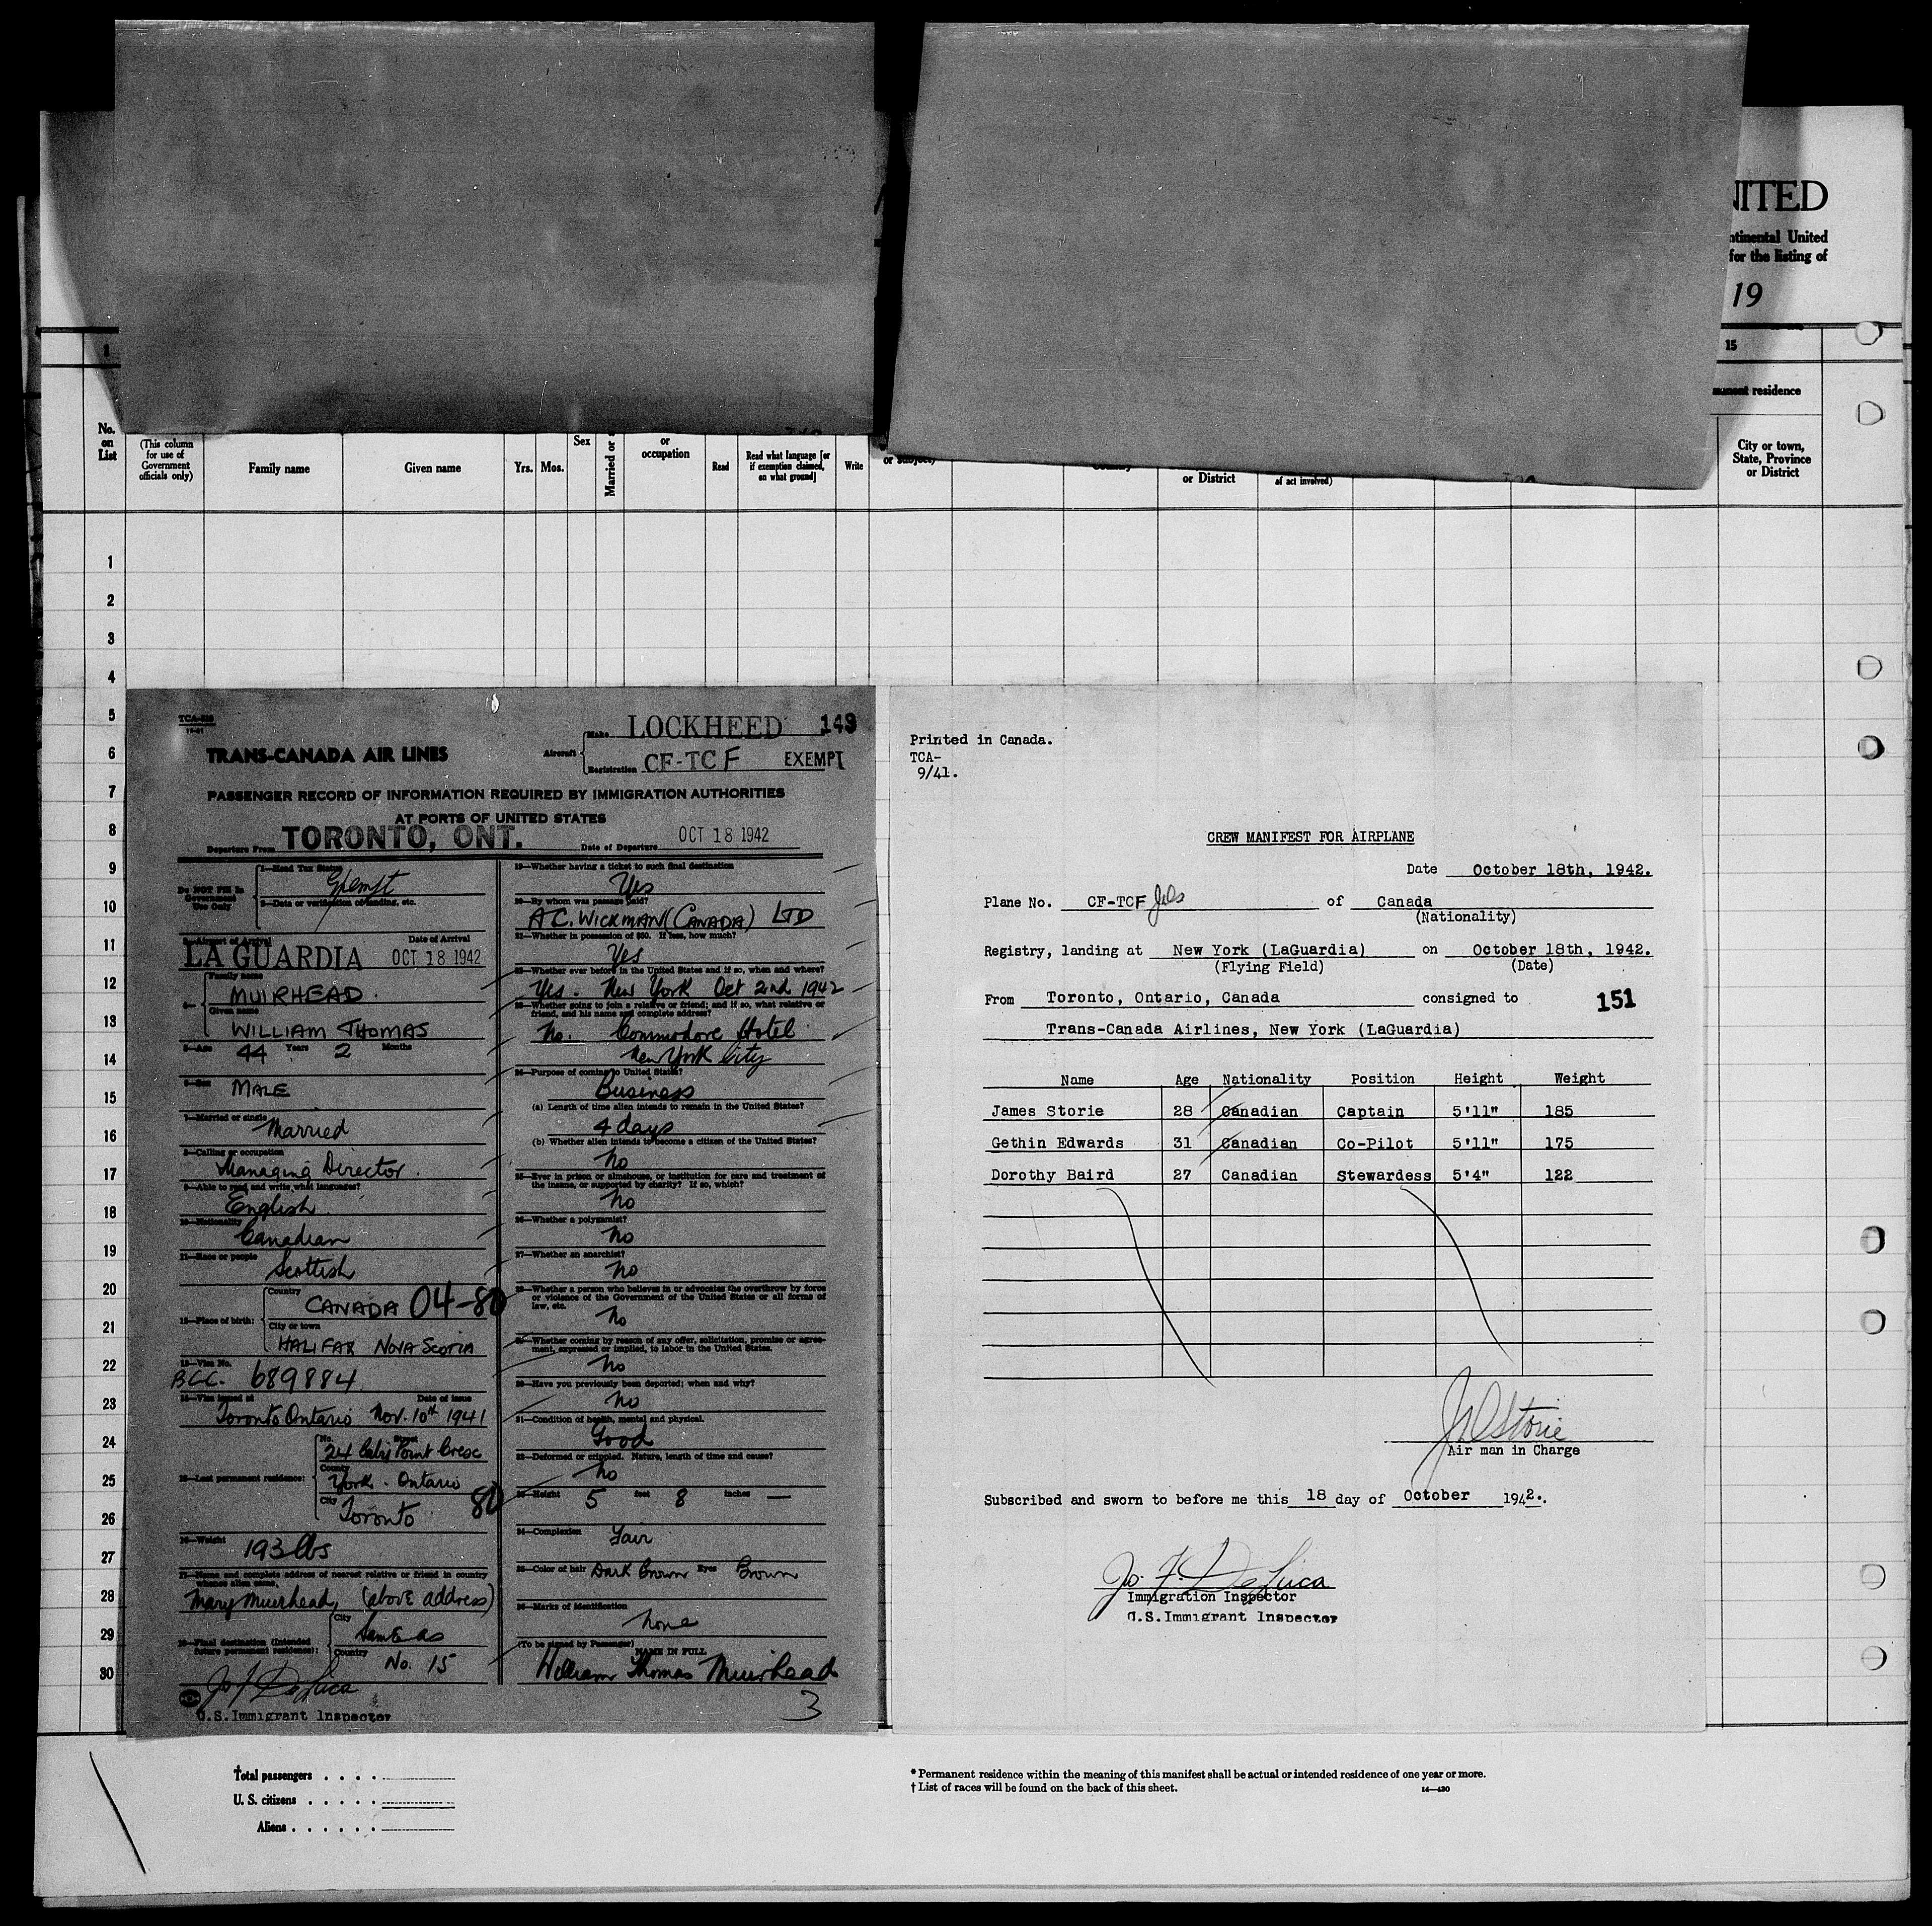 NITED
ntinental United
for the listing of
19
1
15
residence
No.
on
List
(This column
for use of
Government
officials only)
Family name
Given name
Yrs.
Mos.
Sex
Married or
or
occupation
Read
Read what language [or
if exemption claimed,
on what ground]
Write
or subject)
Country
or District
of act involved)
City or town,
State, Province
or District
1
2
3
4
5
6
7
8
9
10
11
12
13
14
15
16
17
18
19
20
21
22
23
24
25
26
27
28
29
30
11-41
TRANS-CANADA AIR LINES
Aircraft
Make LOCKHEED 149
Registration CF-TCF EXEMPT
PASSENGER RECORD OF INFORMATION REQUIRED BY IMMIGRATION AUTHORITIES
AT PORTS OF UNITED STATES
Departure From TORONTO, ONT. Date of Departure OCT 18 1942
Do NOT Fill In
Government
Use Only
1—Head Tax Status
Exempt
2—Data or verification of landing, etc.
3—Airport of Arrival Date of Arrival
LA GUARDIA OCT 18 1942
4—
Family name
MUIRHEAD
Given name
WILLIAM THOMAS
5—Age 44 Years 2 Months
6—Sex MALE
7—Married or single
Married
8—Calling or occupation
Managing Director.
9—Able to read and write what languages?
English
10—Nationality
Canadian
11—Race or people
Scottish
12—Place of birth:
Country
CANADA 04-80
City or town
HALIFAX NOVA SCOTIA
13—Visa No.
BCC. 689884
14—Visa issued at Date of issue
Toronto Ontario Nov. 10th 1941
15—Last permanent residence:
No. Street
24 Point Cresc
County
York - Ontario
City
Toronto 80
16—Weight
193 lbs
17—Name and complete address of nearest relative or friend in country
whence alien came,
Mary Muirhead, (above address)
18—Final destination (Intended
future permanent residence):
City
Same as
Country
No. 15
Jo F DeLuca
U.S. Immigrant Inspector
19—Whether having a ticket to such final destination
Yes
20—By whom was passage paid?
A.C. WICKMAN (CANADA) LTD
21—Whether in possession of $50. If less, how much?
Yes
22—Whether ever before in the United States and if so, when and where?
Yes - New York Oct 2nd 1942
23—Whether going to join a relative or friend; and if so, what relative or
friend, and his name and complete address?
No. Commodore Hotel
New York City
24—Purpose of coming to United States?
Business
(a) Length of time alien intends to remain in the United States?
4 days
(b) Whether alien intends to become a citizen of the United States?
No
25—Ever in prison or almshouse, or institution for care and treatment of
the insane, or supported by charity? If so, which?
No
26—Whether a polygamist?
No
27—Whether an anarchist?
No
28—Whether a person who believes in or advocates the overthrow by force
or violence of the Government of the United States or all forms of
law, etc.
No
29—Whether coming by reason of any offer, solicitation, promise or agree-
ment, expressed or implied, to labor in the United States.
No
30—Have you previously been deported; when and why?
No
31—Condition of health, mental and physical.
Good
32—Deformed or crippled. Nature, length of time and cause?
No
33—Height 5 feet 8 inches —
34—Complexion
Fair
35—Color of hair Dark Brown Eyes Brown
36—Marks of identification
None
(To be signed by Passenger)
NAME IN FULL
William Thomas Muirhead
3
Printed in Canada.
TCA-
9/41.
CREW MANIFEST FOR AIRPLANE
Date October 18th, 1942.
Plane No. CF-TCF of Canada
(Nationality)
Registry, landing at New York (LaGuardia) on October 18th, 1942.
(Flying Field) (Date)
From Toronto, Ontario, Canada consigned to 151
Trans-Canada Airlines, New York (LaGuardia)
Name Age Nationality Position Height Weight
James Storie 28 Canadian Captain 5'11" 185
Gethin Edwards 31 Canadian Co-Pilot 5'11" 175
Dorothy Baird 27 Canadian Stewardess 5'4" 122
Storie
Air man in Charge
Subscribed and sworn to before me this 18 day of October 1942.
Jo. F. DeLuca
Immigration Inspector
U.S. Immigrant Inspector
Total passengers . . . .
U. S. citizens . . . . .
Aliens . . . . . .
* Permanent residence within the meaning of this manifest shall be actual or intended residence of one year or more.
† List of races will be found on the back of this sheet.
14—430